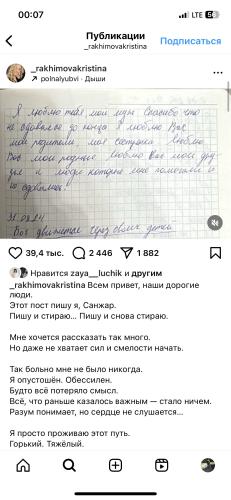 00:07
Публикации
_rakhimovakristina
Подписаться
_rakhimovakristina
polnalyubvi · Дыши
Я люблю тебя, мой муж Спасибо что
не сдовался до конца Я люблю Вас
мои родители, моя сестричка Люблю
Вас мои родные Люблю Вас мои дру
зья и люди которые мне помогали и
не сдовались!
Бог движется через своих детей
39,4 тыс.
2 446
1 882
Нравится zaya__luchik и другим
_rakhimovakristina Всем привет, наши дорогие
люди.
Этот пост пишу я, Санжар.
Пишу и стираю... Пишу и снова стираю.
Мне хочется рассказать так много.
Но даже не хватает сил и смелости начать.
Так больно мне не было никогда.
Я опустошён. Обессилен.
Будто всё потеряло смысл.
Всё, что раньше казалось важным — стало ничем.
Разум понимает, но сердце не слушается...
Я просто проживаю этот путь.
Горький. Тяжёлый.